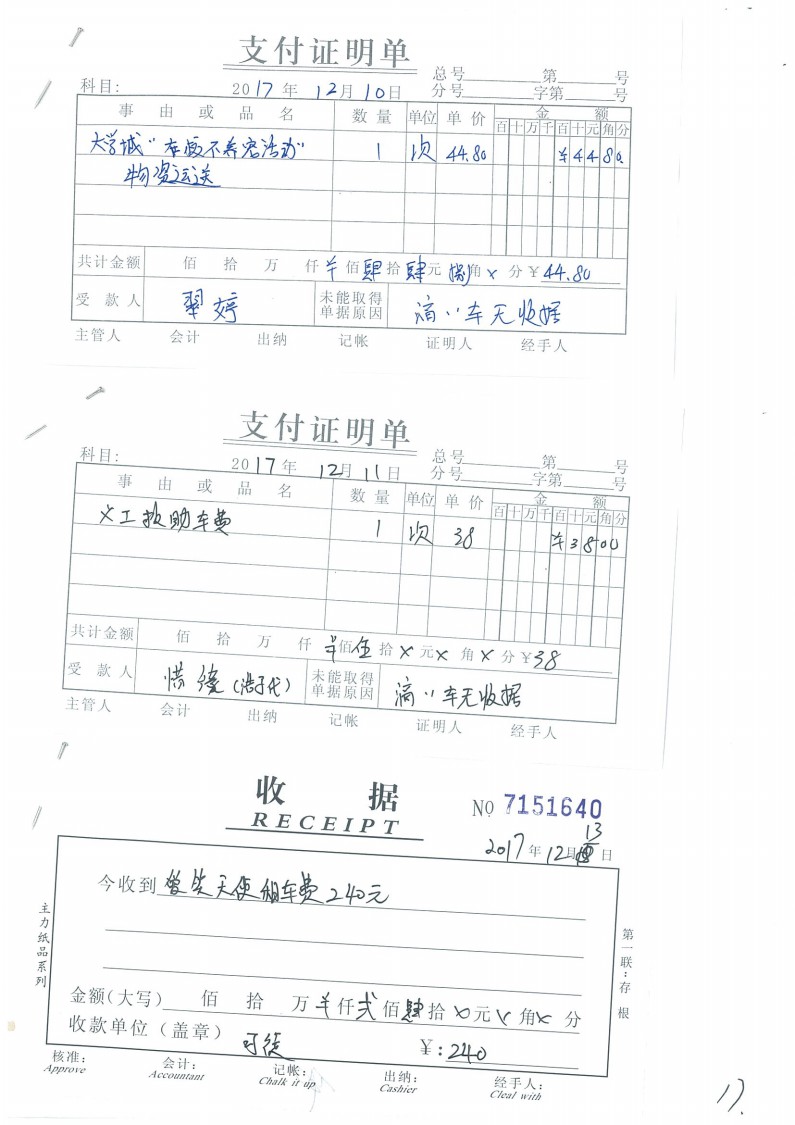 支付证明单
总号 第 号
科目: 2017年 12月 10日 分号 字第 号
事由或品名 数量 单位 单价 金额
百十万千百十元角分
大学城"弃 不养宠活动" 1 次 44.80 ¥4480
物资运送
共计金额 佰 拾 万 仟 ¥佰 肆拾 肆元 捌角 x分 ¥44.80
受款人 翠婷 未能取得单据原因 滴滴车无收据
主管人 会计 出纳 记帐 证明人 经手人
支付证明单
总号 第 号
科目: 2017年 12月 11日 分号 字第 号
事由或品名 数量 单位 单价 金额
百十万千百十元角分
义工救助车费 1 次 38 ¥3800
共计金额 佰 拾 万 仟 ¥佰 伍拾 x元 x角 x分 ¥38
受款人 惜缘(浩子代) 未能取得单据原因 滴滴车无收据
主管人 会计 出纳 记帐 证明人 经手人
收据
RECEIPT
No 7151640
2017年 12月 13日
今收到 天使租车费240元
金额(大写) 佰 拾 万 ¥仟 弍佰 肆拾 x元 x角 x分
收款单位(盖章) ¥:240
核准: 会计: 记帐: 出纳: 经手人:
Approve Accountant Chalk it up Cashier Cleal with
主力纸品系列
第一联:存根
17.